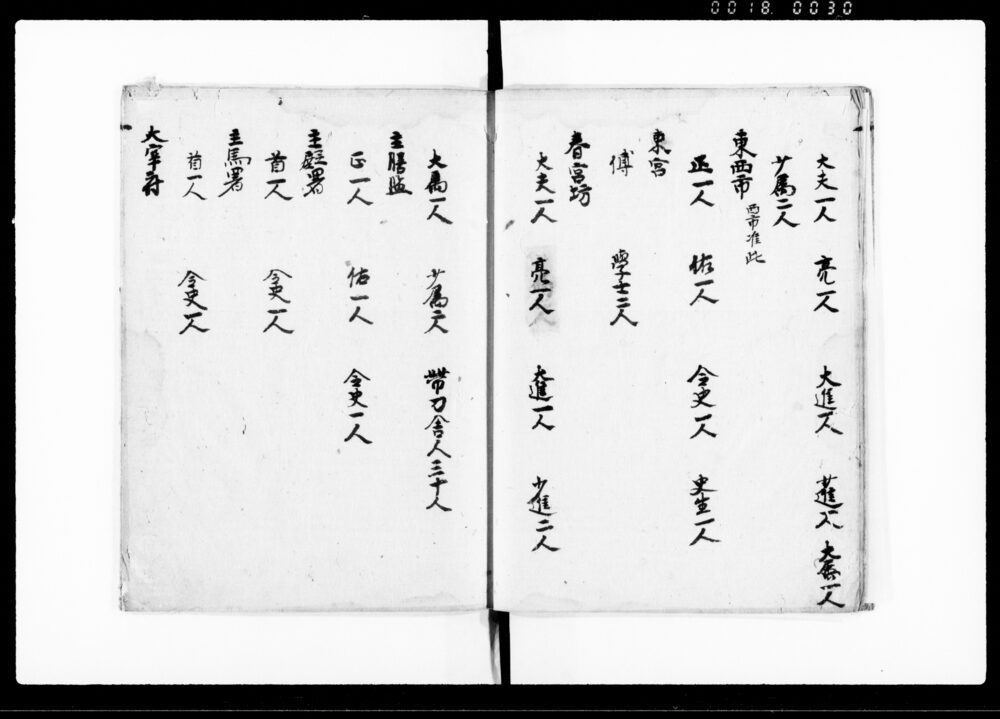 0018 0030
大夫一人 亮一人 大進一人 少進二人 大属一人
少属二人
東西市 西市准此
正一人 佑一人 令史一人 史生一人
東宮
傅 學士二人
春宮坊
大夫一人 亮一人 大進一人 少進二人
大属一人 少属二人 帯刀舎人三十人
主膳監
正一人 佑一人 令史一人
主殿署
首一人 令史一人
主馬署
首一人 令史一人
大宰府